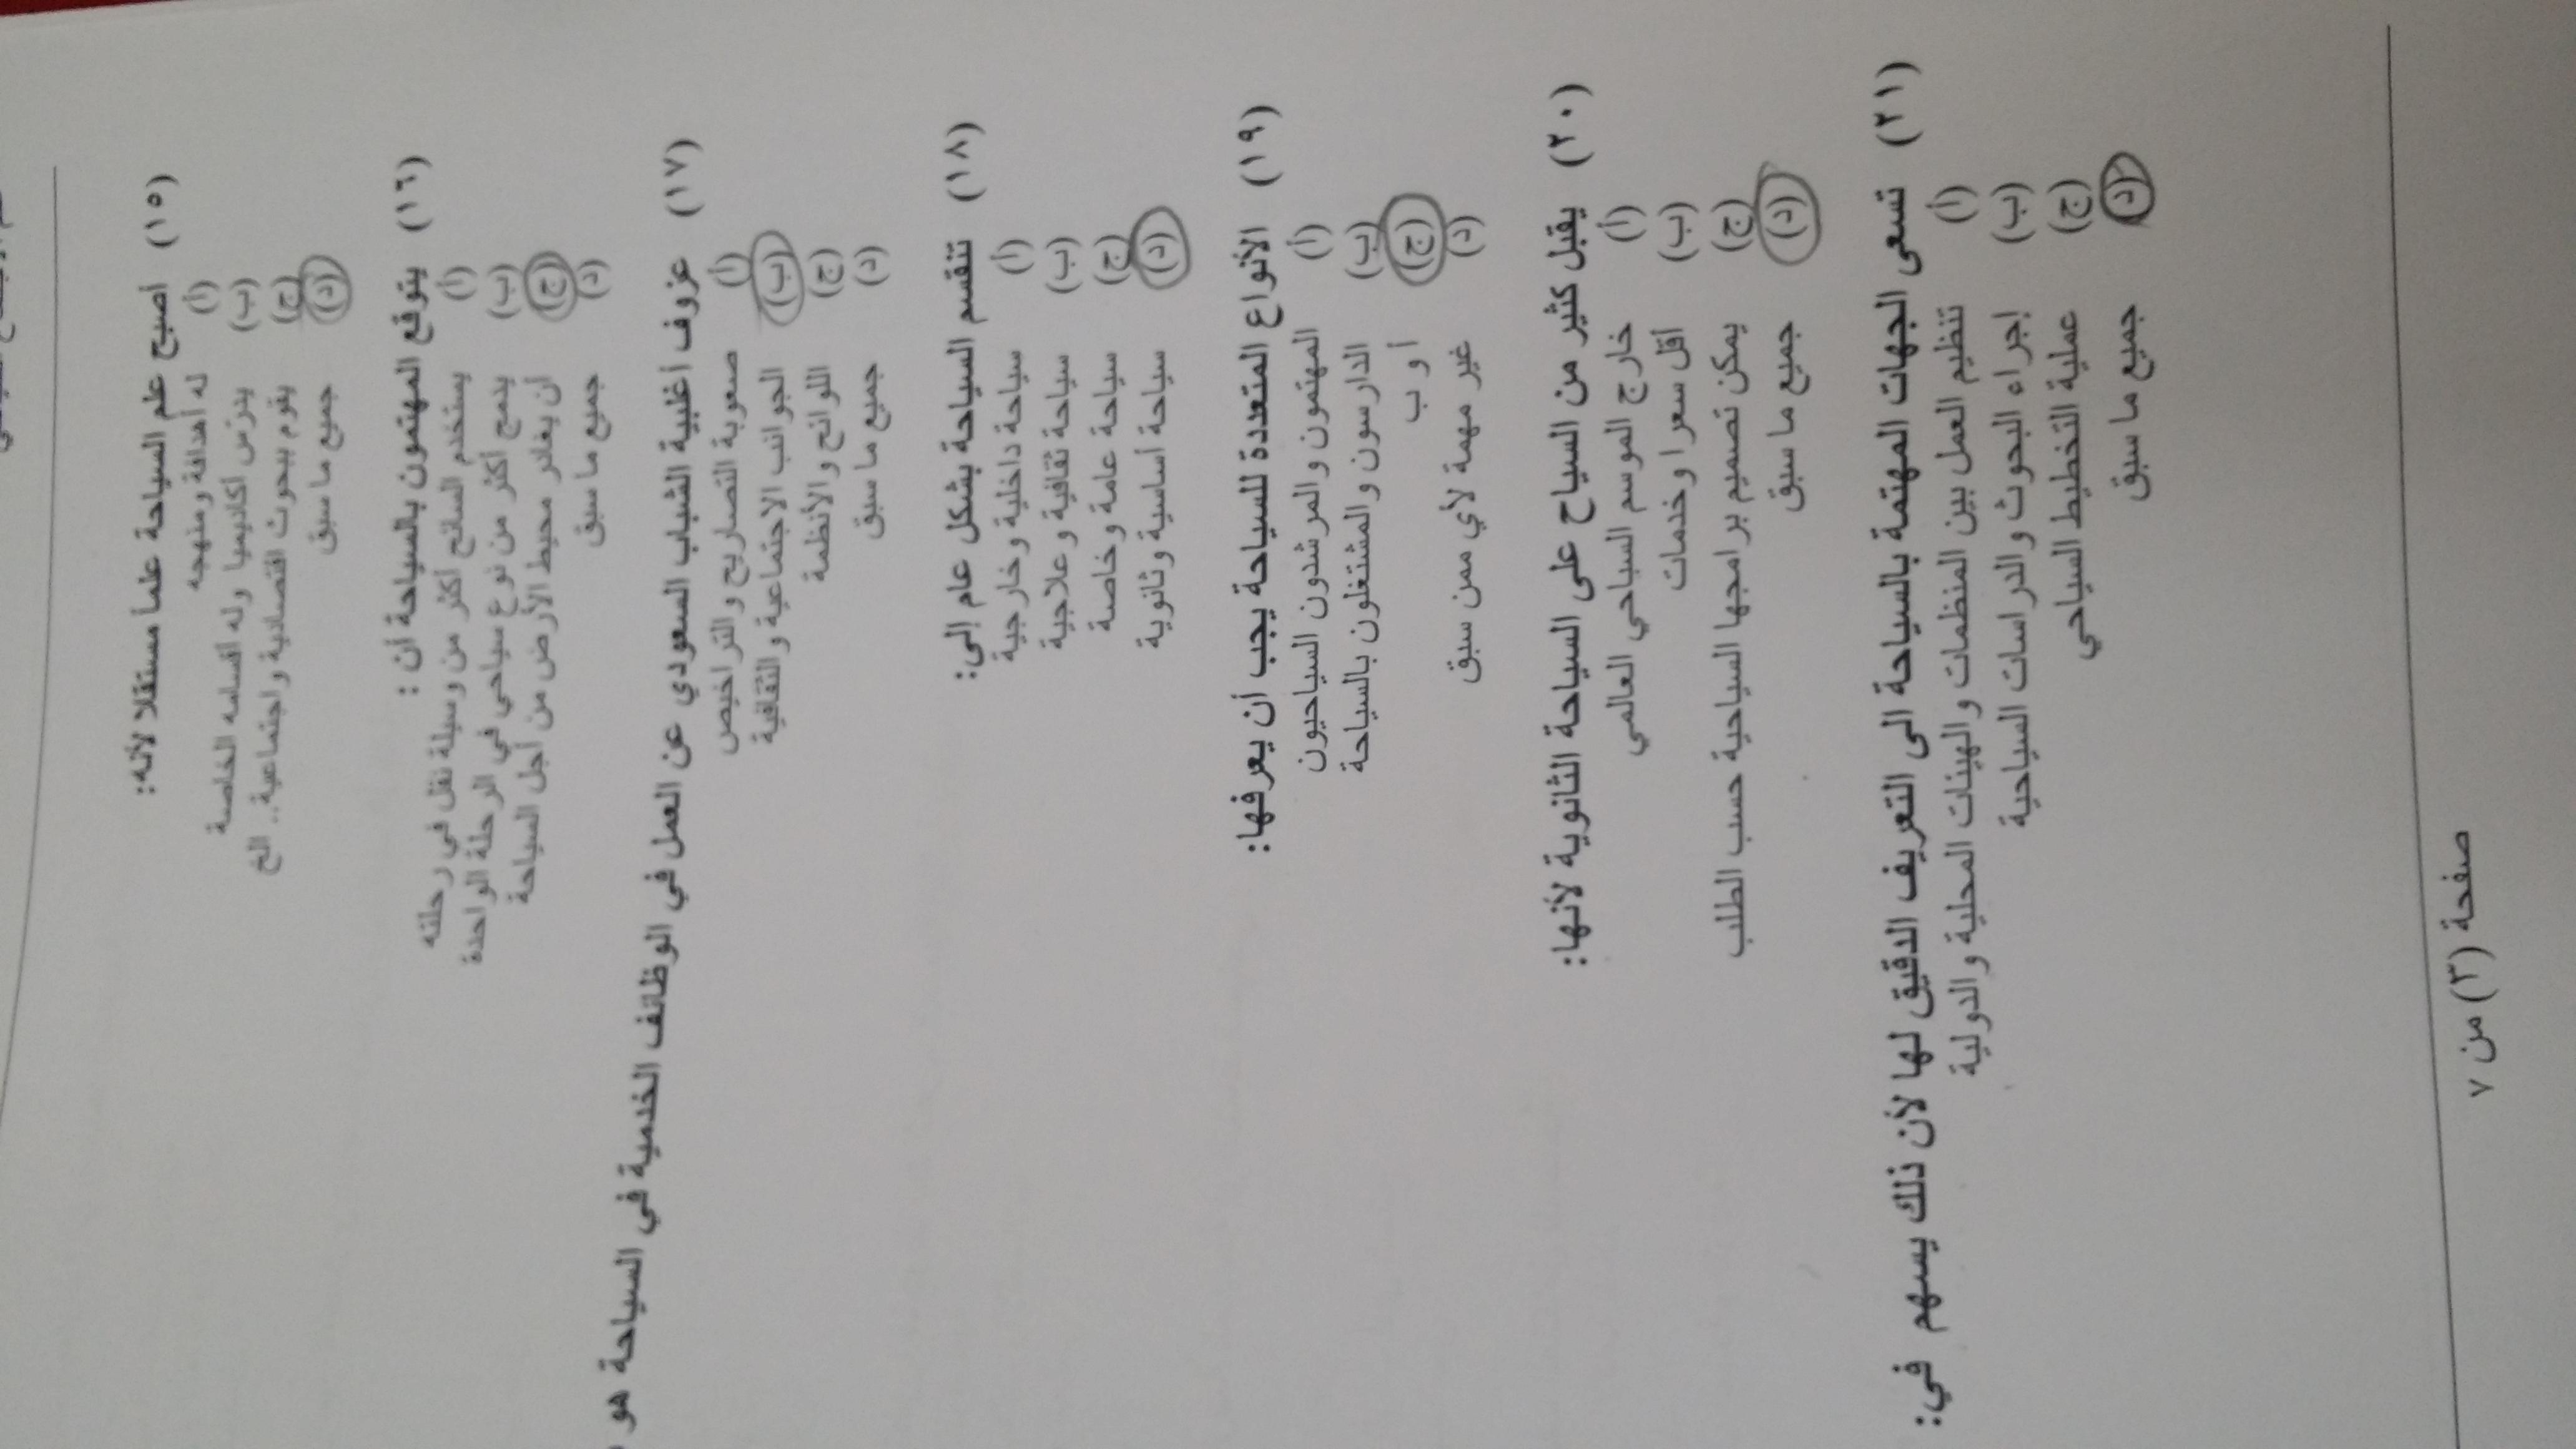 (١٥) أصبح علم السياحة علما مستقلا لأنه:
(أ) له أهدافه ومنهجه
(ب) يدرس أكاديميا وله أقسامه الخاصة
(ج) يقوم ببحوث اقتصادية واجتماعية.. الخ
(د) جميع ما سبق
(١٦) يتوقع المهتمون بالسياحة أن :
(أ) يستخدم السائح أكثر من وسيلة نقل في رحلته
(ب) يدمج أكثر من نوع سياحي في الرحلة الواحدة
(ج) أن يغادر محيط الأرض من أجل السياحة
(د) جميع ما سبق
(١٧) عزوف أغلبية الشباب السعودي عن العمل في الوظائف الخدمية في السياحة هو
(أ) صعوبة التصاريح والتراخيص
(ب) الجوانب الاجتماعية والثقافية
(ج) اللوائح والأنظمة
(د) جميع ما سبق
(١٨) تنقسم السياحة بشكل عام إلى:
(أ) سياحة داخلية وخارجية
(ب) سياحة ثقافية وعلاجية
(ج) سياحة عامة وخاصة
(د) سياحة أساسية وثانوية
(١٩) الأنواع المتعددة للسياحة يجب أن يعرفها:
(أ) المهتمون والمرشدون السياحيون
(ب) الدارسون والمشتغلون بالسياحة
(ج) أ و ب
(د) غير مهمة لأي ممن سبق
(٢٠) يقبل كثير من السياح على السياحة الثانوية لأنها:
(أ) خارج الموسم السياحي العالمي
(ب) أقل سعرا وخدمات
(ج) يمكن تصميم برامجها السياحية حسب الطلب
(د) جميع ما سبق
(٢١) تسعى الجهات المهتمة بالسياحة الى التعريف الدقيق لها لأن ذلك يسهم في:
(أ) تنظيم العمل بين المنظمات والهيئات المحلية والدولية
(ب) إجراء البحوث والدراسات السياحية
(ج) عملية التخطيط السياحي
(د) جميع ما سبق
صفحة (٣) من ٧